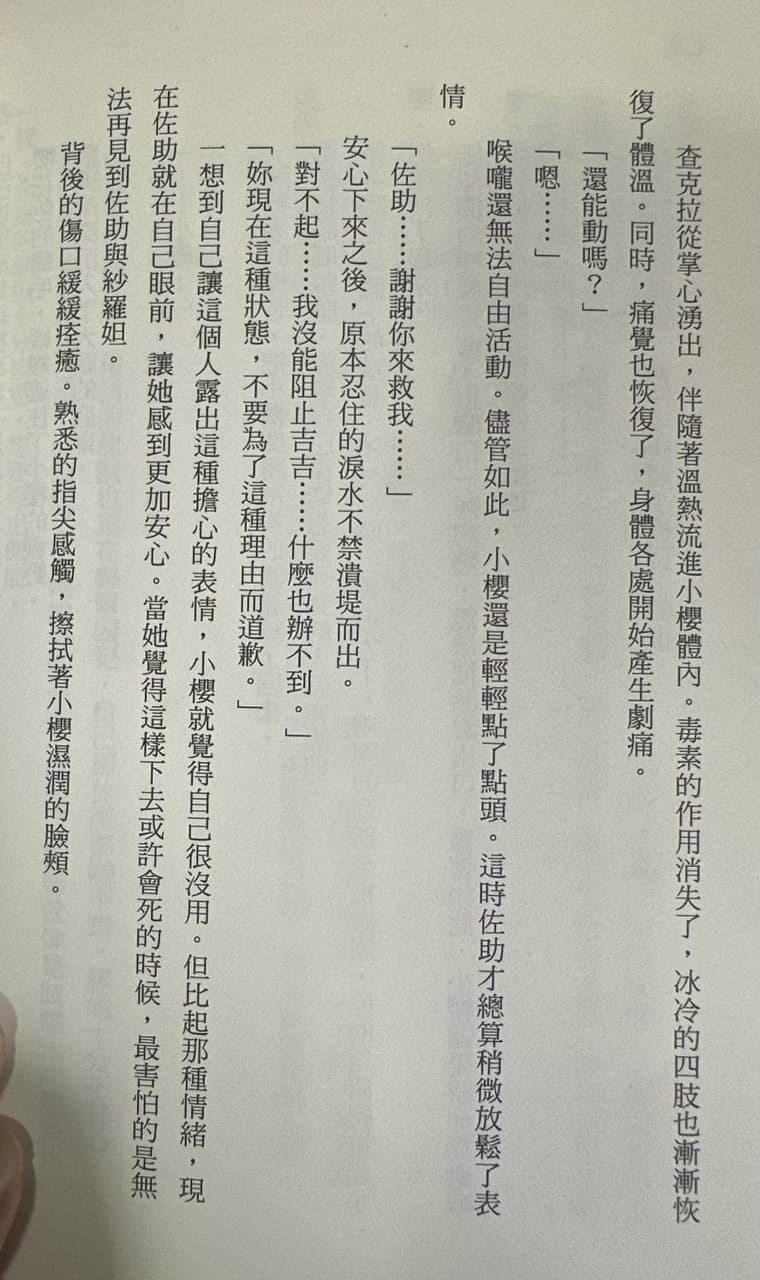 查克拉從掌心湧出，伴隨著溫熱流進小櫻體內。毒素的作用消失了，冰冷的四肢也漸漸恢
復了體溫。同時，痛覺也恢復了，身體各處開始產生劇痛。
「還能動嗎？」
「嗯……」
喉嚨還無法自由活動。儘管如此，小櫻還是輕輕點了點頭。這時佐助才總算稍微放鬆了表
情。
「佐助……謝謝你來救我……」
安心下來之後，原本忍住的淚水不禁潰堤而出。
「對不起……我沒能阻止吉吉……什麼也辦不到。」
「妳現在這種狀態，不要為了這種理由而道歉。」
一想到自己讓這個人露出這種擔心的表情，小櫻就覺得自己很沒用。但比起那種情緒，現
在佐助就在自己眼前，讓她感到更加安心。當她覺得這樣下去或許會死的時候，最害怕的是無
法再見到佐助與紗羅妲。
背後的傷口緩緩痊癒。熟悉的指尖感觸，擦拭著小櫻濕潤的臉頰。